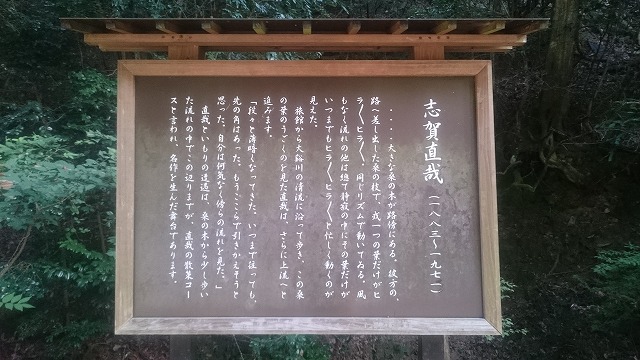 志賀直哉(一八八三～一九七一)
‥‥大きな桑の木が路傍にある。彼方の、
路へ差し出した桑の枝で、或一つの葉だけがヒ
ラ〳〵ヒラ〳〵、同じリズムで動いてゐる。風
もなく流れの他は總て静寂の中にその葉だけが
いつまでもヒラ〳〵ヒラ〳〵と忙しく動くのが
見えた。
旅館から大谿川の清流に沿って歩き、この桑
の葉のうごくのを見た直哉は、さらに上流へと
進みます。
「段々と薄暗くなってきた。いつまで往っても、
先の角はあった。もうここらで引きかえそうと
思った。自分は何気なく傍らの流れを見た。」
直哉といもりの遭遇は、桑の木から少し歩い
た流れの中でこの辺りまでが、直哉の散策コー
スと言われ、名作を生んだ舞台であります。